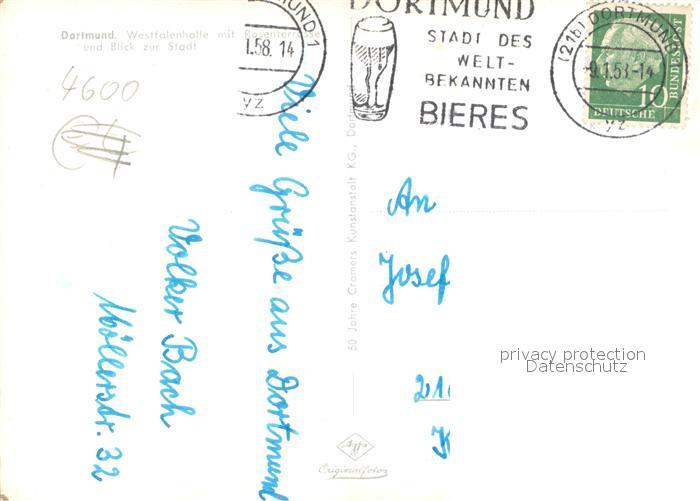 Dortmund. Westfalenhalle mit Rosenterrasse
und Blick zur Stadt
MUND 1
1.58. 14
yz
DORTMUND
STADT DES
WELT-
BEKANNTEN
BIERES
(21b) DORTMUND
-9.1.58-14
yz
10
DEUTSCHE
BUNDESPOST
4600
Viele Grüße aus Dortmund
Volker Bach
Möllerstr. 32
50 Jahre Cramers Kunstanstalt KG., Dortmund
An
Josef
21
K
privacy protection
Datenschutz
Agfa
Originalfoto